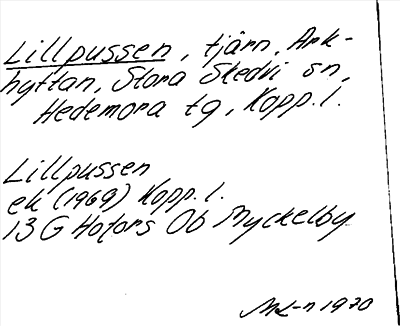 Lillpussen, tjärn, Ark-
hyttan, Stora Skedvi sn,
Hedemora tg, Kopp. l.
Lillpussen
ek (1969) Kopp. l.
13 G Hofors Ob Myckelby
1970